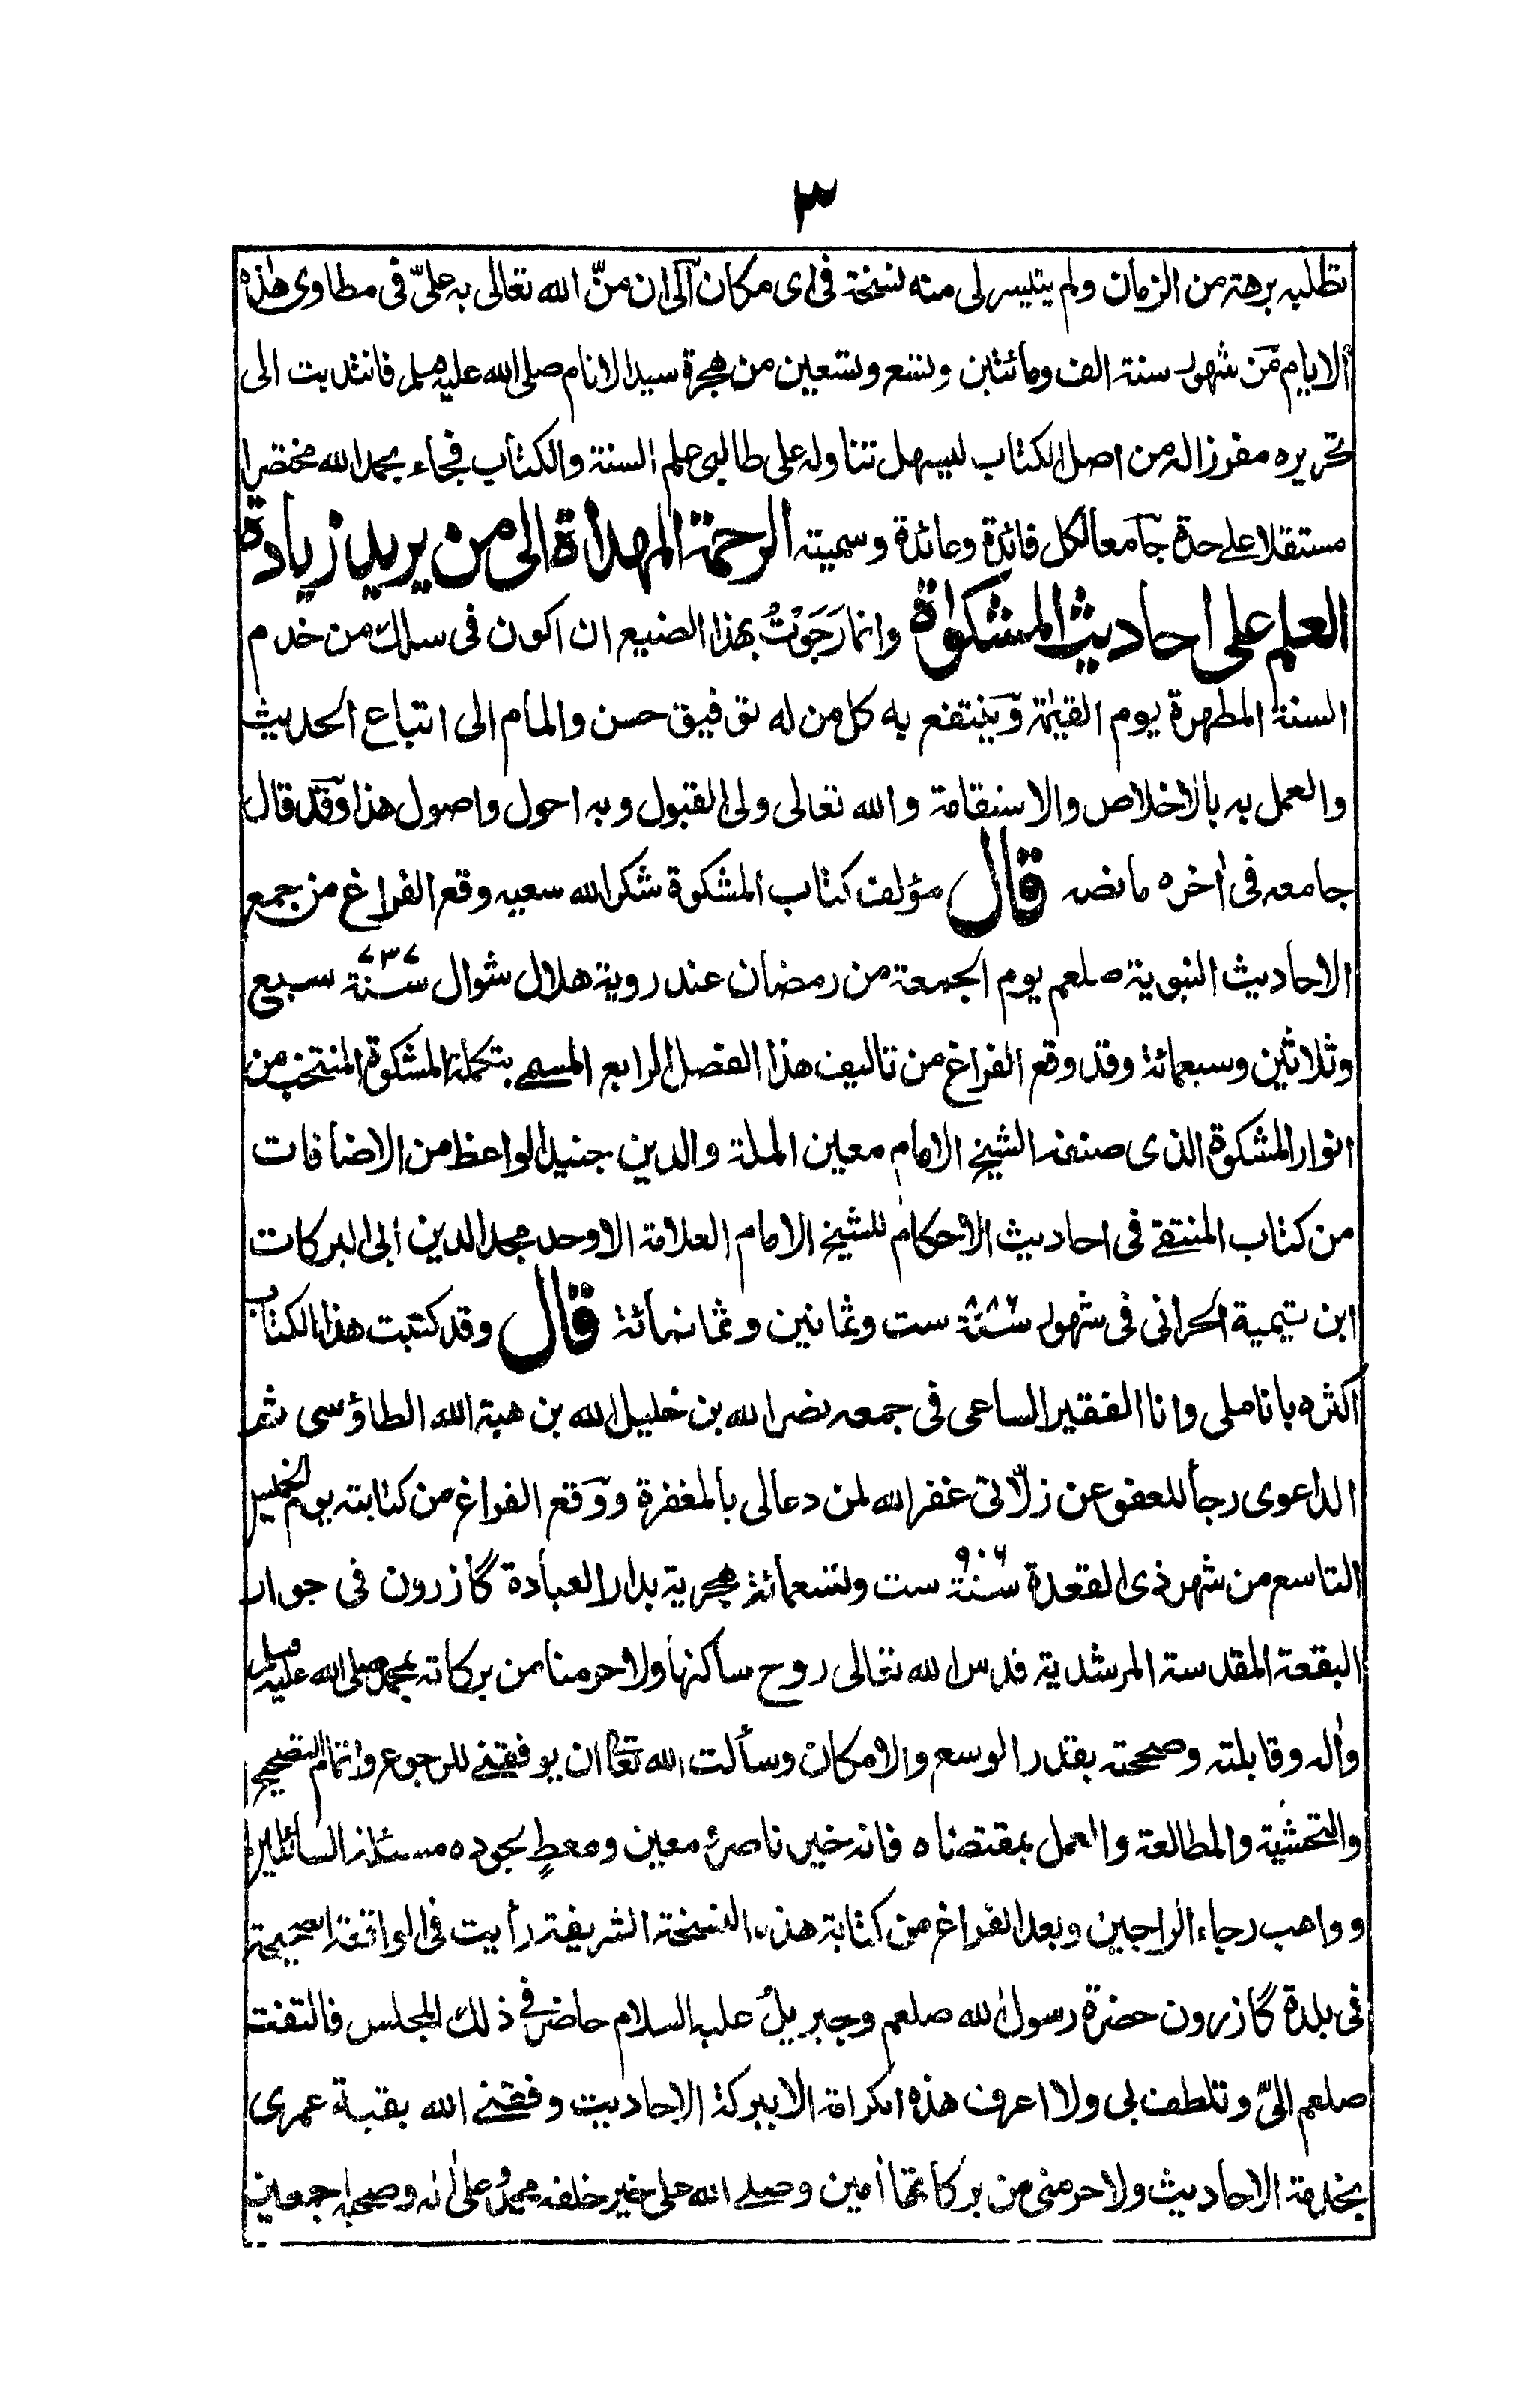 ٣
تطلبه برهة من الزمان ولم يتيسر لى منه نسخة فى اى مكان الى ان منّ الله تعالى به علىّ فى مطاوى هٰذه
الايام من شهور سنة الف ومائتين وتسع وتسعين من هجرة سيد الانام صلى الله عليه وسلم فانتدبت الى
تحريره مفرزا له من اصل الكتاب ليسهل تناوله على طالبى علم السنة والكتاب فجاء بحمد الله مختصرا
مستقلا على حدة جامعا لكل فائدة وعائدة وسميته الرحمة المهداة الى من يريد زيادة
العلم على احاديث المشكوٰة وانما رَجَوْتُ بهذا الصنيع ان اكون فى سلك من خدم
السنة المطهرة يوم القيٰمة وَيَنتفع به كل من له توفيق حسن والمام الى اتباع الحديث
والعمل به بالاخلاص والاستقامة والله تعالى ولى القبول وبه احول واصول هذا وقد قال
جامعه فى اٰخره ما نصه قال مؤلف كتاب المشكوة شكر الله سعيه وقع الفراغ من جمع
الاحاديث النبوية صلعم يوم الجمعة من رمضان عند روية هلال شوال سنة ٧٣٧ سبع
وثلاثين وسبعمائة وقد وقع الفراغ من تاليف هذا الفصل الرابع المسمى بتكملة المشكوة المنتخب من
انوار المشكوة الذى صنفه الشيخ الامام معين الملة والدين جنيد الواعظ من الاضافات
من كتاب المنتقے فى احاديث الأحكام للشيخ الامام العلامة الاوحد مجد الدين ابى البركات
ابن تيمية الحرانى فى شهور سنة ٨٨٦ ست وثمانين وثمانمائة قال وقد كتبت هذا الكتاب
اكثره باناملى وانا الفقير الساعى فى جمعه نصر الله بن خليل الله بن هبة الله الطاؤسى ثم
الداعوى رجأ للعفو عن زلّاتى غفر الله لمن دعا لى بالمغفرة ووقع الفراغ من كتابته يوم الخميس
التاسع من شهر ذى القعدة سنة ٩٠٦ ست وتسعمائة هجرية بدار العبادة گازرون فى جوار
البقعة المقدسة المرشدية قدس الله تعالى روح ساكنها ولا حرمنا من بركاته بمحمد صلى الله عليه وسلم
واٰله وقابلته وصححته بقدر الوسع والامكان وسألت الله تعا ان يوفقنے للرجوع واتمام التصحيح
والتحشية والمطالعة والعمل بمقتضاه فانه خير ناصر ومعين ومعطٍ بجوده مسئلة السائلين
وواهب رجاء الراجين وبعد الفراغ من كتابة هذه النسخة الشريفة رأيت فى الواقعة الصحيحة
فى بلدة گازرون حضرة رسول الله صلعم وجبريل عليه السلام حاضر فے ذلك المجلس فالتفت
صلعم الىّ وتلطف بى ولا اعرف هذه الكرامة الا ببركة الاحاديث وفقنے الله بقية عمرى
بخدمة الاحاديث ولا حرمنى من بركاتها اٰمين وصلے الله على خير خلقه محمدٍ وعلىٰ اٰله وصحبه اجمعين